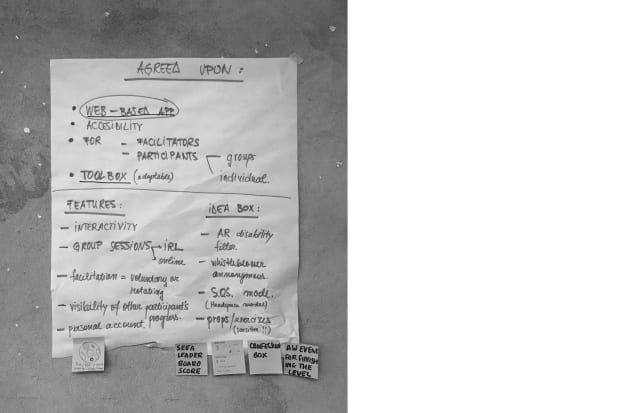 AGREED UPON:
• WEB-BASED APP
• ACCESIBILITY
• FOR – FACILITATORS
– PARTICIPANTS
groups
individual.
• TOOLBOX (adaptable)
FEATURES:
– INTERACTIVITY
– GROUP SESSIONS → IRL
→ online
– facilitation = voluntary or
rotating
– visibility of other participant's
progress.
– personal account.
IDEA BOX:
– AR disability
filter.
– whistleblower
annonymous.
– S.O.S. mode.
– props/exercises
SELFA
LEADER
BOARD
SCORE
BOX
AW EVENT
FOR FINISH
ING THE
LEVEL